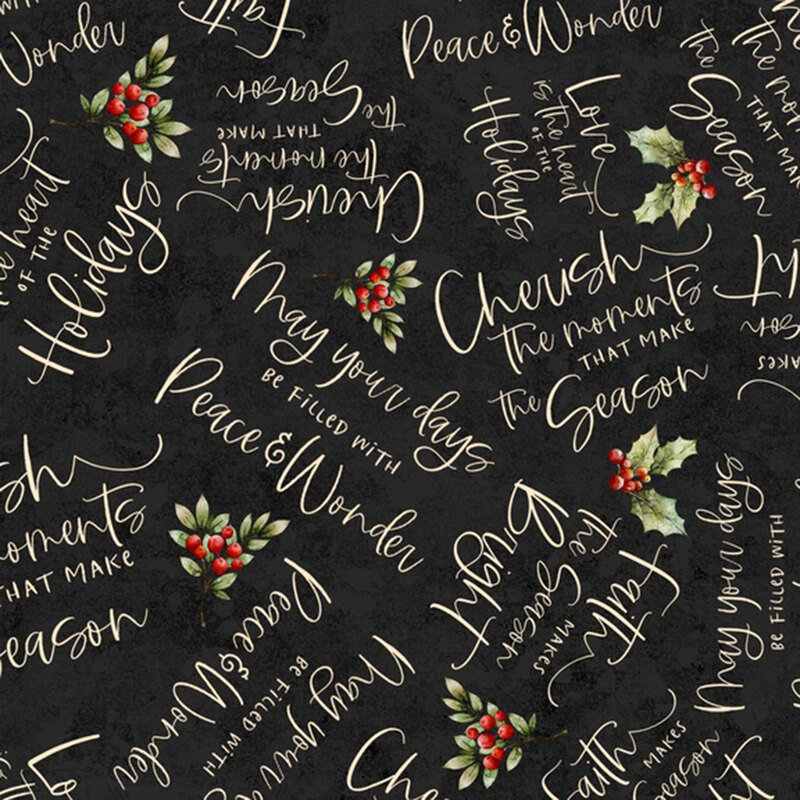 Wonder
Faith
Peace & Wonder
the
Season
the moments
THAT MAKE
Cherish
the moments
THAT MAKE
the Season
Love
is the heart
OF THE
Holidays
the
Season
the moments
THAT MAKE
heart
OF THE
Holidays
May your days
BE FILLED WITH
Peace & Wonder
Cherish
the moments
THAT MAKE
the Season
Faith
MAKES
the Season
Bright
May your days
BE FILLED WITH
THAT MAKE
May your
BE FILLED WITH
Peace & Wonder
Faith
MAKES
Season